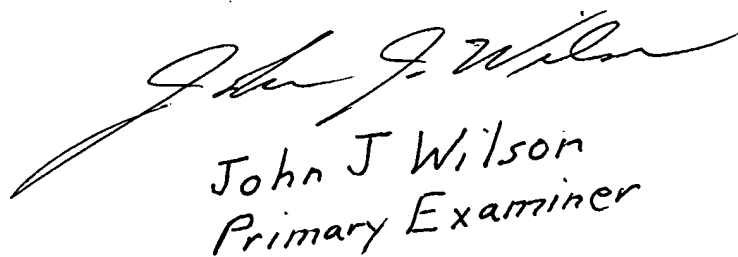 John J. Wilson
John J Wilson
Primary Examiner